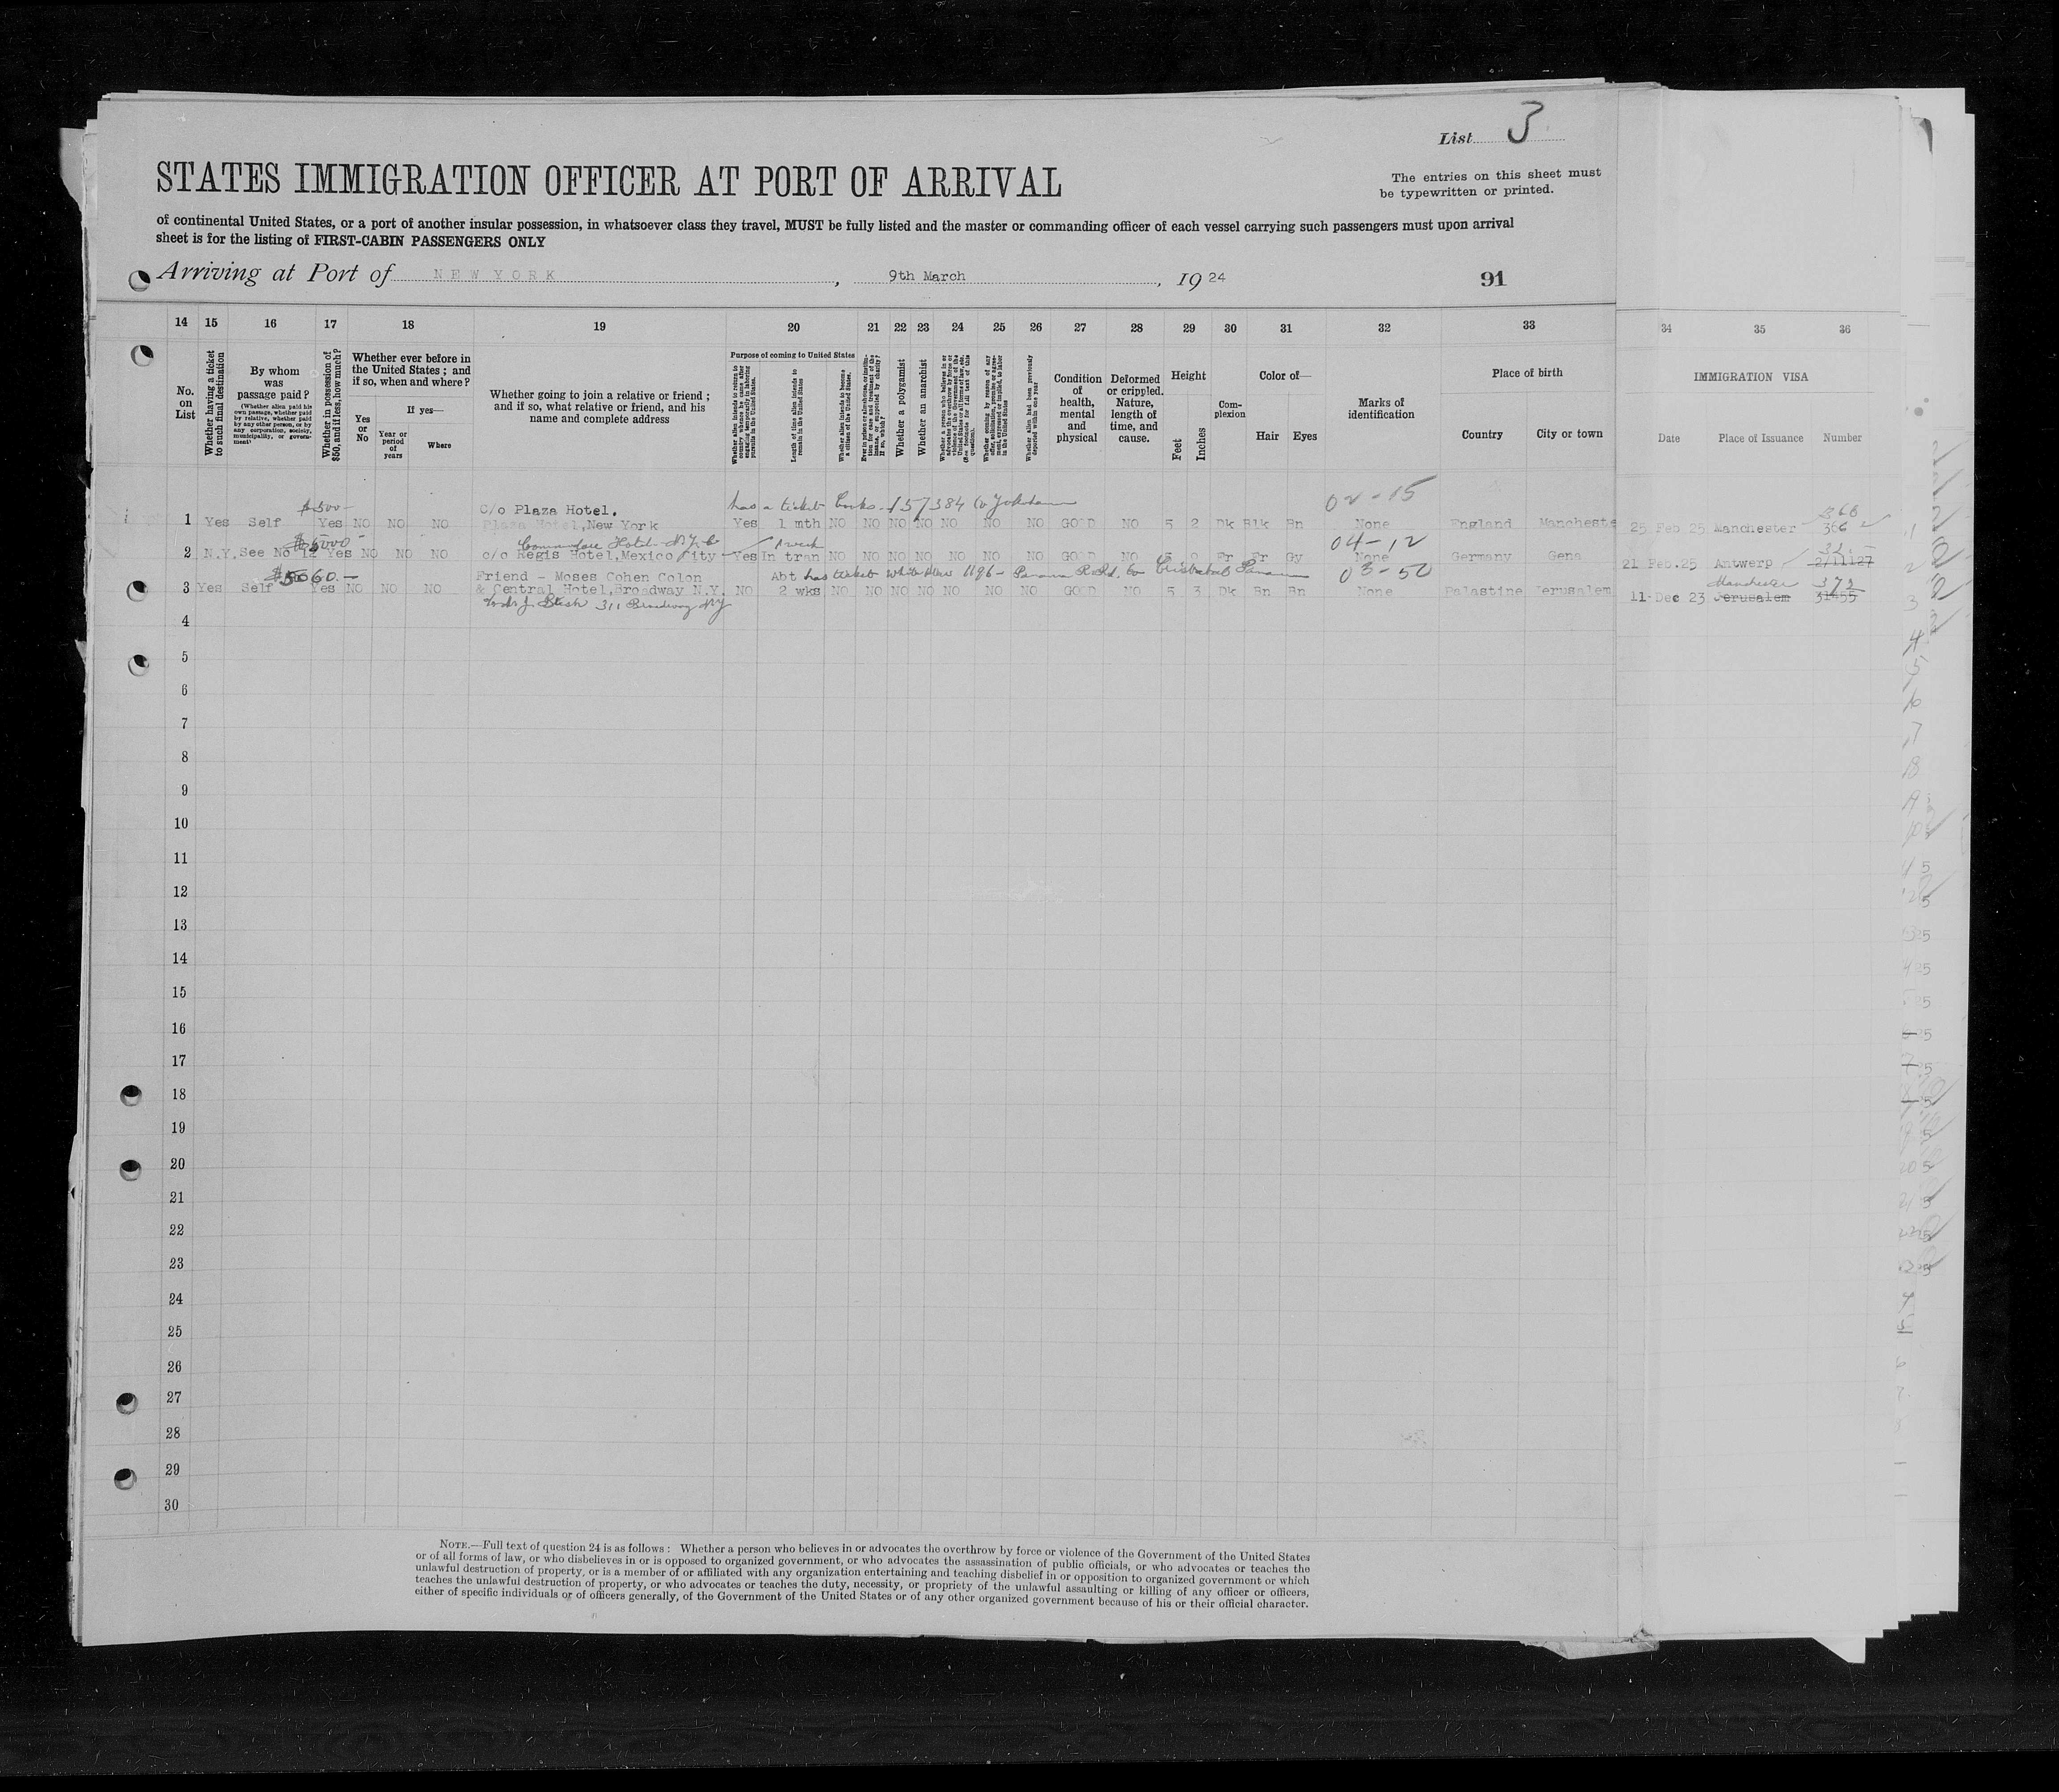 List 3
STATES IMMIGRATION OFFICER AT PORT OF ARRIVAL
The entries on this sheet must
be typewritten or printed.
of continental United States, or a port of another insular possession, in whatsoever class they travel, MUST be fully listed and the master or commanding officer of each vessel carrying such passengers must upon arrival
sheet is for the listing of FIRST-CABIN PASSENGERS ONLY
Arriving at Port of NEW YORK, 9th March, 19 24 91
14 15 16 17 18 19 20 21 22 23 24 25 26 27 28 29 30 31 32 33 34 35 36
No. on List
Whether having a ticket to such final destination
By whom was passage paid?
(Whether alien paid his own passage, whether paid by relative, whether paid by any other person, or by any corporation, society, municipality, or government)
Whether in possession of $50, and if less, how much?
Whether ever before in the United States; and if so, when and where?
Yes or No
If yes—
Year or period of years
Where
Whether going to join a relative or friend; and if so, what relative or friend, and his name and complete address
Purpose of coming to United States
Length of time alien intends to remain in the United States
Whether alien intends to become a citizen of the United States
Whether a polygamist
Whether an anarchist
Whether alien had been previously deported within one year
Condition of health, mental and physical
Deformed or crippled. Nature, length of time, and cause.
Height
Feet
Inches
Complexion
Color of—
Hair
Eyes
Marks of identification
Place of birth
Country
City or town
IMMIGRATION VISA
Date
Place of Issuance
Number
$500- C/o Plaza Hotel. has a ticket Cooks 157384 to 02-15 368
1 Yes Self Yes NO NO NO Plaza Hotel, New York Yes 1 mth NO NO NO NO NO NO NO GOOD NO 5 2 Dk Blk Bn None England Mancheste 25 Feb 25 Manchester 366
$5000- Commodore Hotel N.Y.C 1 week 04-12 32
2 N.Y. See No 12 Yes NO NO NO c/o Regis Hotel, Mexico City Yes In tran NO NO NO NO NO NO NO GOOD NO Fr Fr Gy None Germany Gena 21 Feb.25 Antwerp 2/11127
$5060.- Friend - Moses Cohen Colon Abt has ticket White Star 1196 - Panama R.Rd. to Cristobal Panama 03-50 Manchester 372
3 Yes Self Yes NO NO NO & Central Hotel, Broadway N.Y. NO 2 wks NO NO NO NO NO NO NO GOOD NO 5 3 Dk Bn Bn None Palastine Jerusalem 11 Dec 23 Jerusalem 31455
311 Broadway NY
4
5
6
7
8
9
10
11
12
13
14
15
16
17
18
19
20
21
22
23
24
25
26
27
28
29
30
NOTE.—Full text of question 24 is as follows: Whether a person who believes in or advocates the overthrow by force or violence of the Government of the United States
or of all forms of law, or who disbelieves in or is opposed to organized government, or who advocates the assassination of public officials, or who advocates or teaches the
unlawful destruction of property, or is a member of or affiliated with any organization entertaining and teaching disbelief in or opposition to organized government or which
teaches the unlawful destruction of property, or who advocates or teaches the duty, necessity, or propriety of the unlawful assaulting or killing of any officer or officers,
either of specific individuals or of officers generally, of the Government of the United States or of any other organized government because of his or their official character.